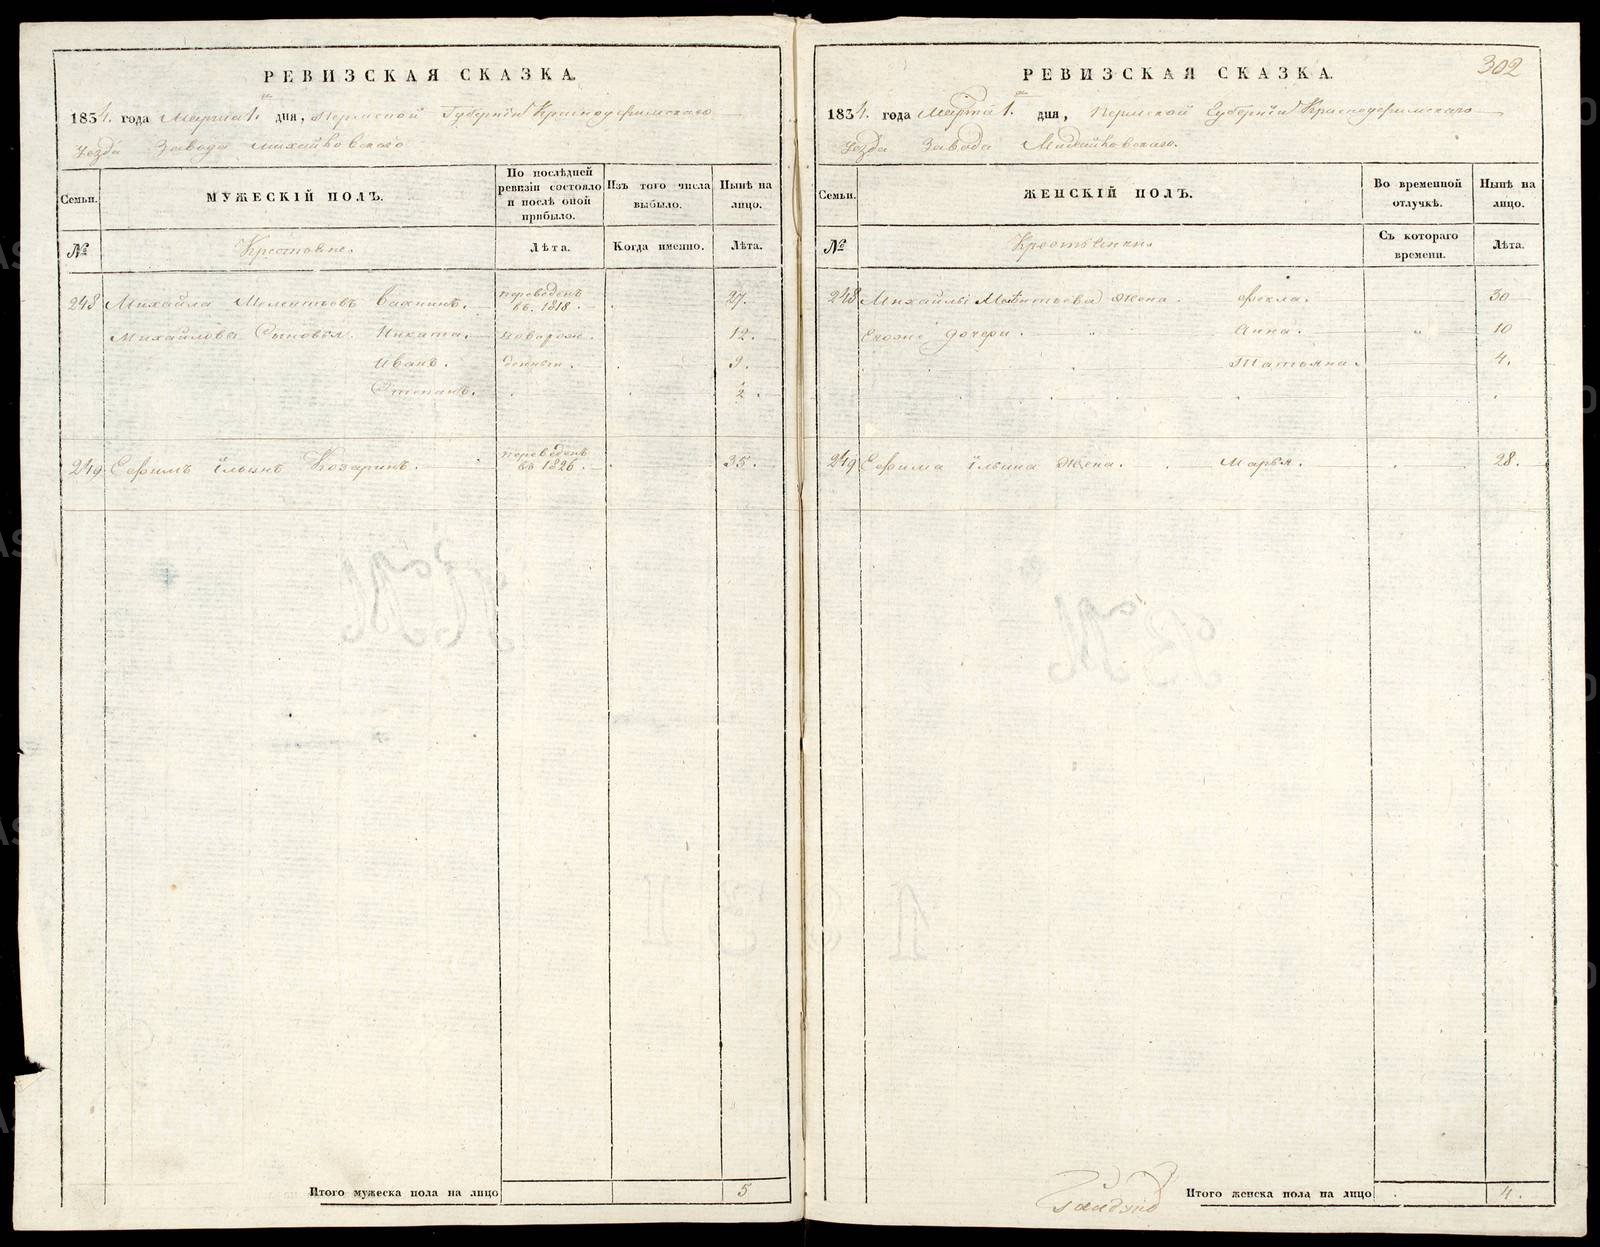 РЕВИЗСКАЯ СКАЗКА.
1834. года Марта 1. дня, Пермской Губернии Красноуфимскаго
Уезда Завода Михайловскаго
Семьи.
МУЖЕСКІЙ ПОЛЪ.
По послѣдней ревизіи состояло и послѣ оной прибыло.
Изъ того числа выбыло.
Нынѣ на лицо.
№
Крестьяне.
Лѣта.
Когда именно.
Лѣта.
248 Михайла Мелентьевъ переведенъ въ 1818. 27.
Михайловы Сыновья Никита. новорож- 12.
Иванъ. денные. 9.
Степанъ. 2.
249 Ефимъ Ильинъ Козаринъ. переведенъ въ 1826. 35.
Итого мужеска пола на лицо 5
302
РЕВИЗСКАЯ СКАЗКА.
1834. года Марта 1. дня, Пермской Губернии Красноуфимскаго
Уезда Завода Михайловскаго.
Семьи.
ЖЕНСКІЙ ПОЛЪ.
Во временной отлучкѣ.
Нынѣ на лицо.
№
Крестьянки.
Съ котораго времени.
Лѣта.
248 Михайлы Мелентьева Жена. Фекла. 30
дочери. " Анна. " 10
Татьяна. 4.
249 Ефима Ильина Жена. Марья. 28.
Итого женска пола на лицо 4.